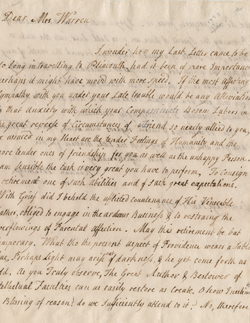 Dear Mrs. Warren
I wonder how my Last Letter came to be
so long in travelling to Plymouth, had it been of more importance
perhaps it might have moved with more speed. If the most affecting
sympathy with you under your Late trouble would be any alleviation
to that anxiety with which your Compassionate Bosom Labors in
the great reverse of Circumstances of a friend so nearly allied to you,
be assured in my Heart are the tender Feelings of Humanity and the
more tender ones of Friendship for you as well as the unhappy Person.
I am sensible the task is very great you have to perform, To consign
to retirement one of such abilities and of such great expectations.
With Grief did I behold the afflicted countenance of His Venerable
Father, obliged to engage in the arduous Business of restraing the
overflowings of Parental affection. May this retirement be but
temporary. What tho the present aspect of Providence wears a Sable
hue, Perhaps Light may arise of darkness & he yet come forth as
Gold. As you Truly observe, The Great Author & Bestower of
Intellectual Faculties can as easily restore as Create. O how Inestimable
the Blessing of reason! do we sufficiently attend to it? No, therefore